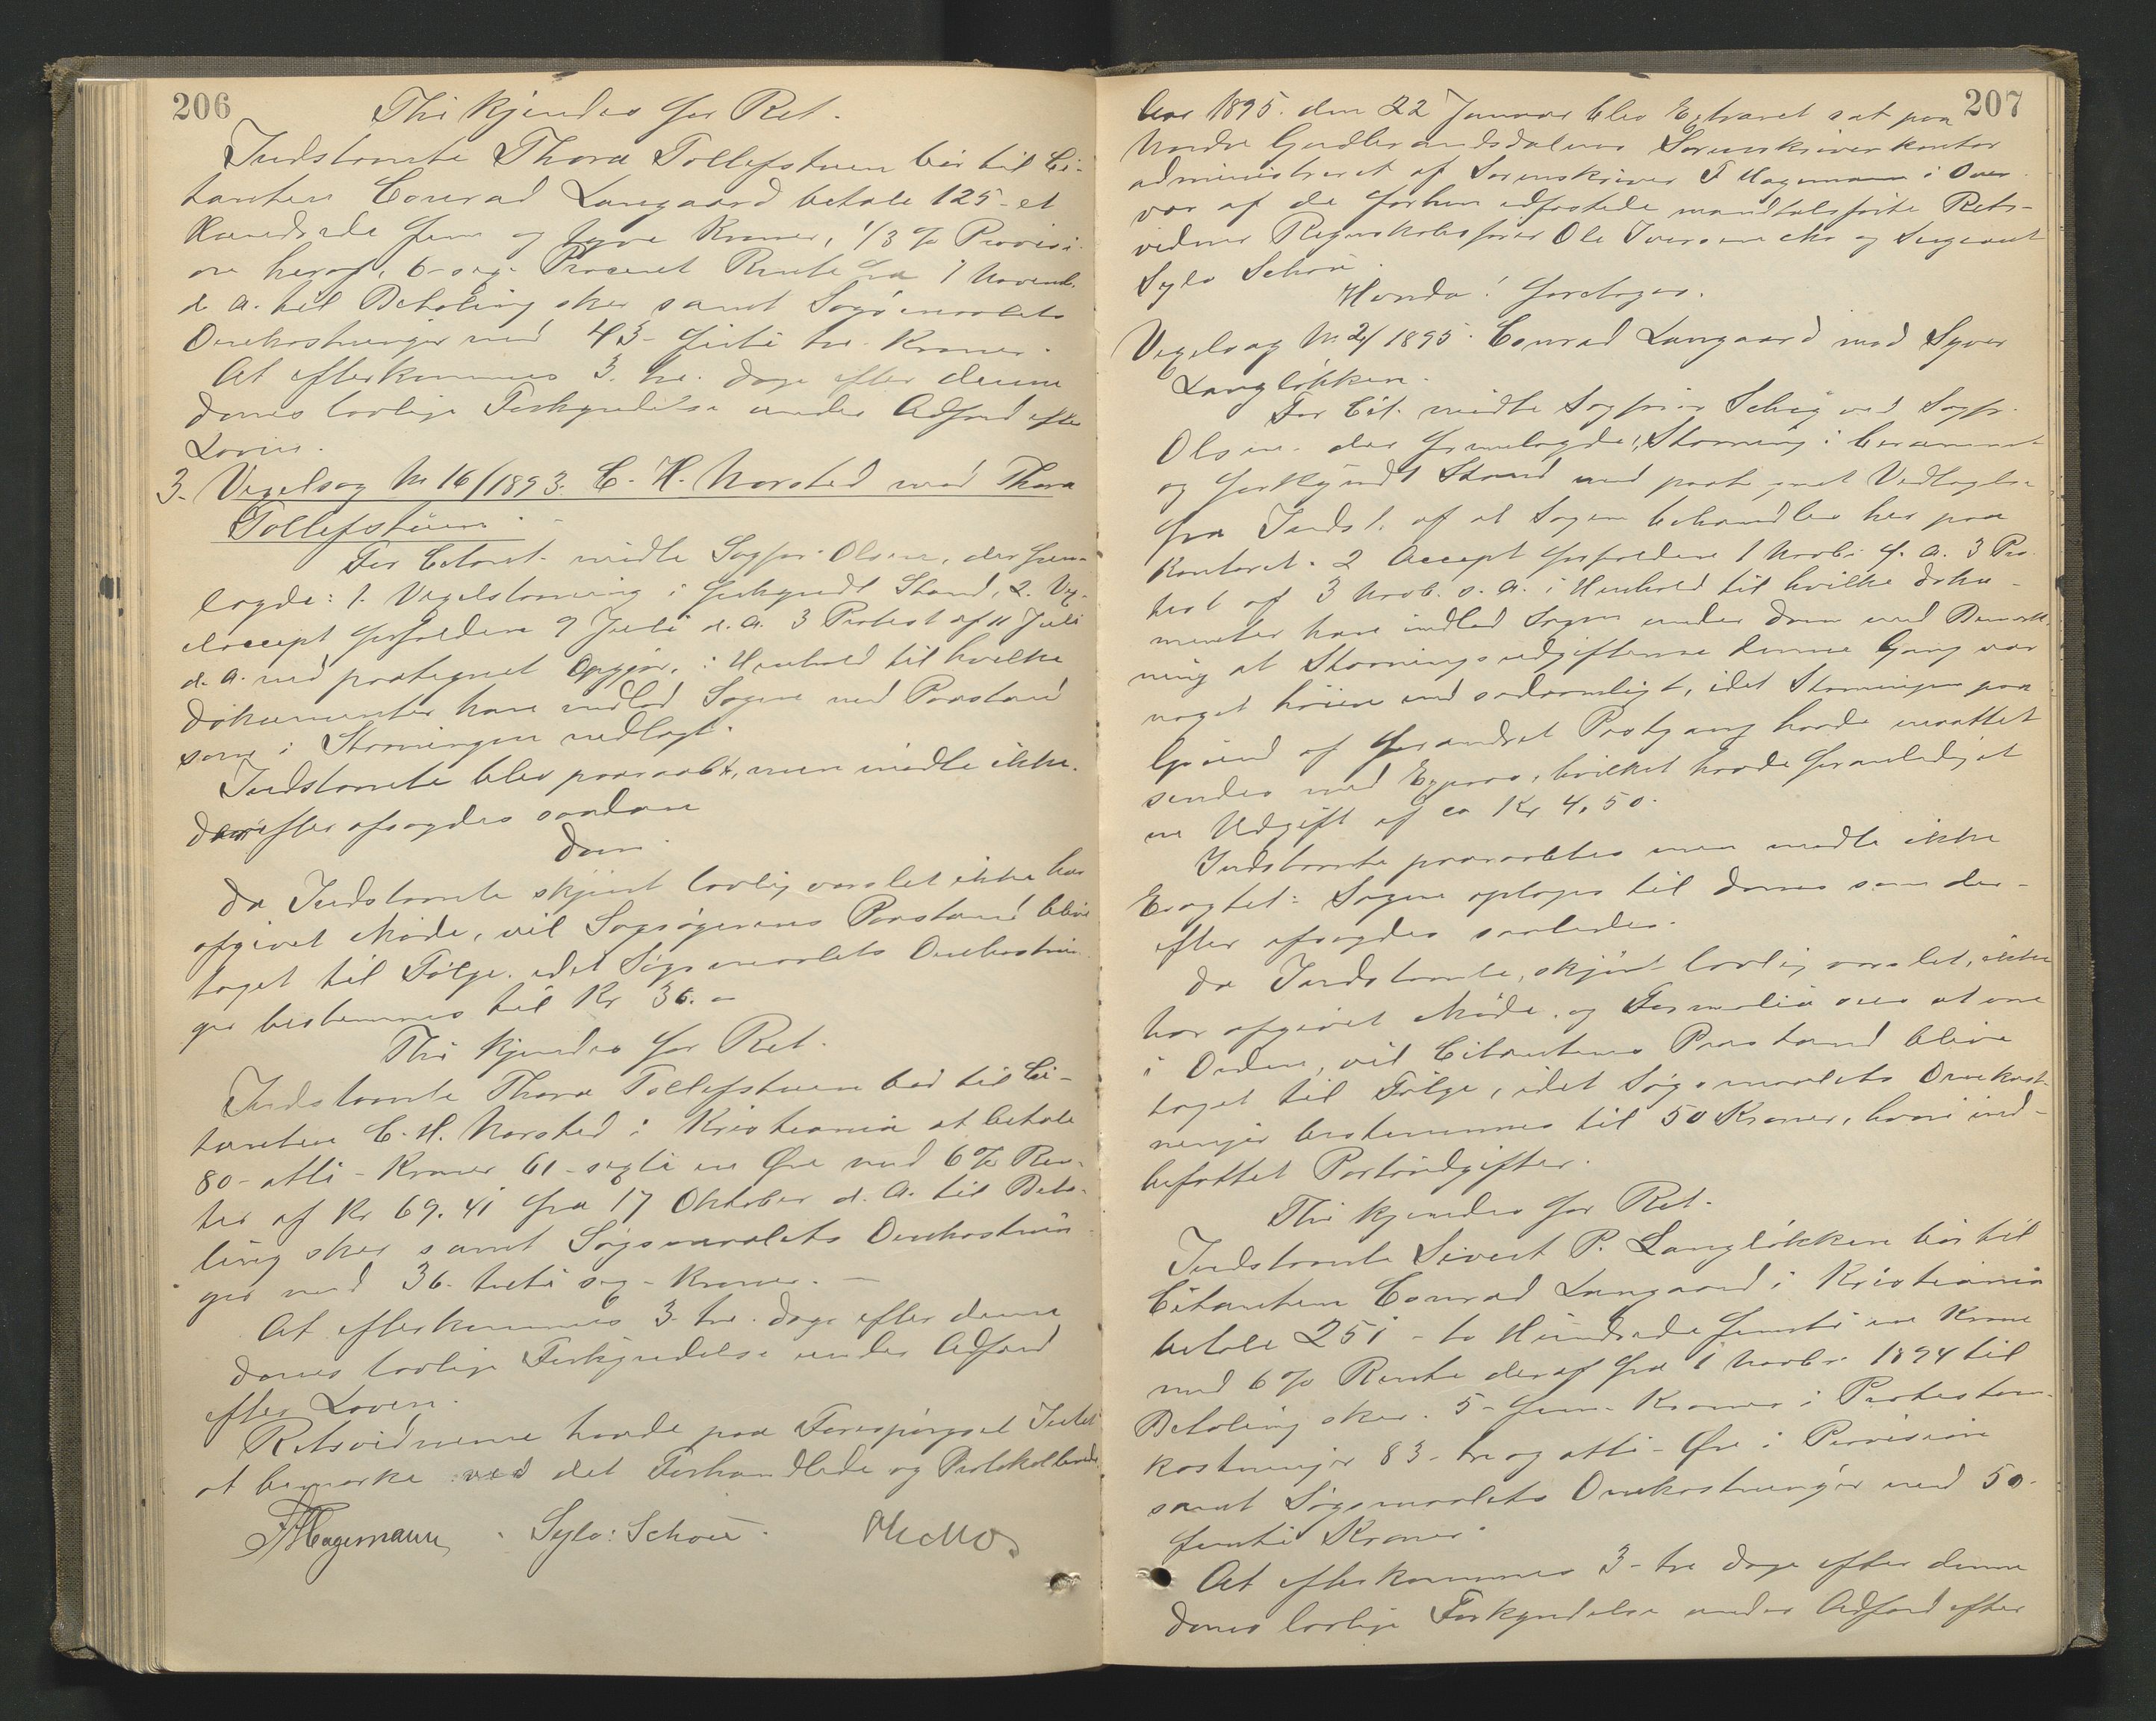 206
Thi kjendes for Ret.
Indstævnte Thora Tollefstuen bør til Ci-
tanten Conrad Langaard betale 125 - et
Hundrede fem og tyve Kroner, 1/3 % Provisi-
on heraf, 6 - sex Procent Rente fra 1 Novemb.
d. A. til Betaling sker samt Søgsmaalets
Omkostninger med 43 - firti tre Kroner.
At efterkommes 3 - tre Dage efter denne
Doms lovlige Forkyndelse under Adfærd efter
Loven.
3. Vexelsag No 16/1893. C. H. Norsted mod Thora
Tollefstuen.
For Citant. mødte Sagfør. Olsen, der frem-
lagde: 1. Vexelstævning i forkyndt Stand, 2. Vex-
elaccept forfalden 9 Juli d. A. 3 Protest af 11 Juli
d. A. med paategnet Opgjør, i Henhold til hvilke
Dokumenter han indlod Sagen med Paastand
som i Stævningen nedlagt.
Indstævnte blev paaraabt, men mødte ikke.
Derefter afsagdes saadan
Dom.
Da Indstævnte skjønt lovlig varslet ikke har
afgivet Møde, vil Sagsøgerens Paastand blive
taget til Følge, idet Søgsmaalets Omkostnin-
ger bestemmes til Kr 36. -
Thi kjendes for Ret.
Indstævnte Thora Tollefstuen bør til Ci-
tanten C. H. Norsted i Kristiania at betale
80 - otti - Kroner 61 - sexti en Øre med 6 % Ren-
ter af Kr 69.41 fra 17 Oktober d. A. til Beta-
ling sker samt Søgsmaalets Omkostnin-
ger med 36 - treti sex - Kroner. -
At efterkommes 3 - tre - Dage efter denne
Doms lovlige Forkyndelse under Adfærd
efter Loven.
Retsvidnerne havde paa Forespørgsel Intet
at bemærke ved det Forhandlede og Protokollerede.
FHagemann. Sylv: Schou. OIMo
207
Aar 1895. den 22 Januar blev Extraret sat paa
Nordre Gudbrandsdalens Sorenskriverkontor
administreret af Sorenskriver F Hagemann i Over-
vær af de forhen edfæstede mandtalsførte Rets-
vidner Regnskabsfører Ole Iversen Mo og Sergeant
Sylv Schou.
Hvorda! foretoges.
Vexelsag No 2/1895. Conrad Langaard mod Syver
Langløkken.
For Cit. mødte Sagfører Schøy ved Sagfr.
Olsen, der fremlagde: 1, Stævning i berammet
og forkyndt Stand med paategnet Vedtagelse
fra Indst. af at Sagen behandles her paa
Kontoret. 2 Accept forfalden 1 Novbr f. A. 3 Pro-
test af 3 Novb. s. A. i Henhold til hvilke Doku-
menter han indlod Sagen under Dom med Bemærk-
ning at Stævningsudgifterne denne Gang var
noget høiere end sedvanligt, idet Stævningen paa
Grund af forandret Postgang havde maattet
sendes med Expres, hvilket havde foranlediget
en Udgift af ca Kr 4,50.
Indstævnte paaraabtes men mødte ikke
Eragtet: Sagen optages til Doms som der-
efter afsagdes saaledes.
Da Indstævnte, skjønt lovlig varslet, ikke
har afgivet Møde, og Formalia sees at være
i Orden, vil Citantens Paastand blive
taget til Følge, idet Søgsmaalets Omkost-
ninger bestemmes til 50 Kroner, hvori ind-
befattet Portoudgifter.
Thi kjendes for Ret.
Indstævnte Sivert P. Langløkken bør til
Citanten Conrad Langaard i Kristiania
betale 251 - to Hundrede femti en Krone
med 6 % Rente deraf fra 1 Novbr. 1894 til
Betaling sker. 5 - fem - Kroner i Protestom-
kostninger 83 - tre og otti - Øre i Provision
samt Søgsmaalets Omkostninger med 50 -
femti Kroner.
At efterkommes 3 - tre Dage efter denne
Doms lovlige Forkyndelse under Adfærd efter